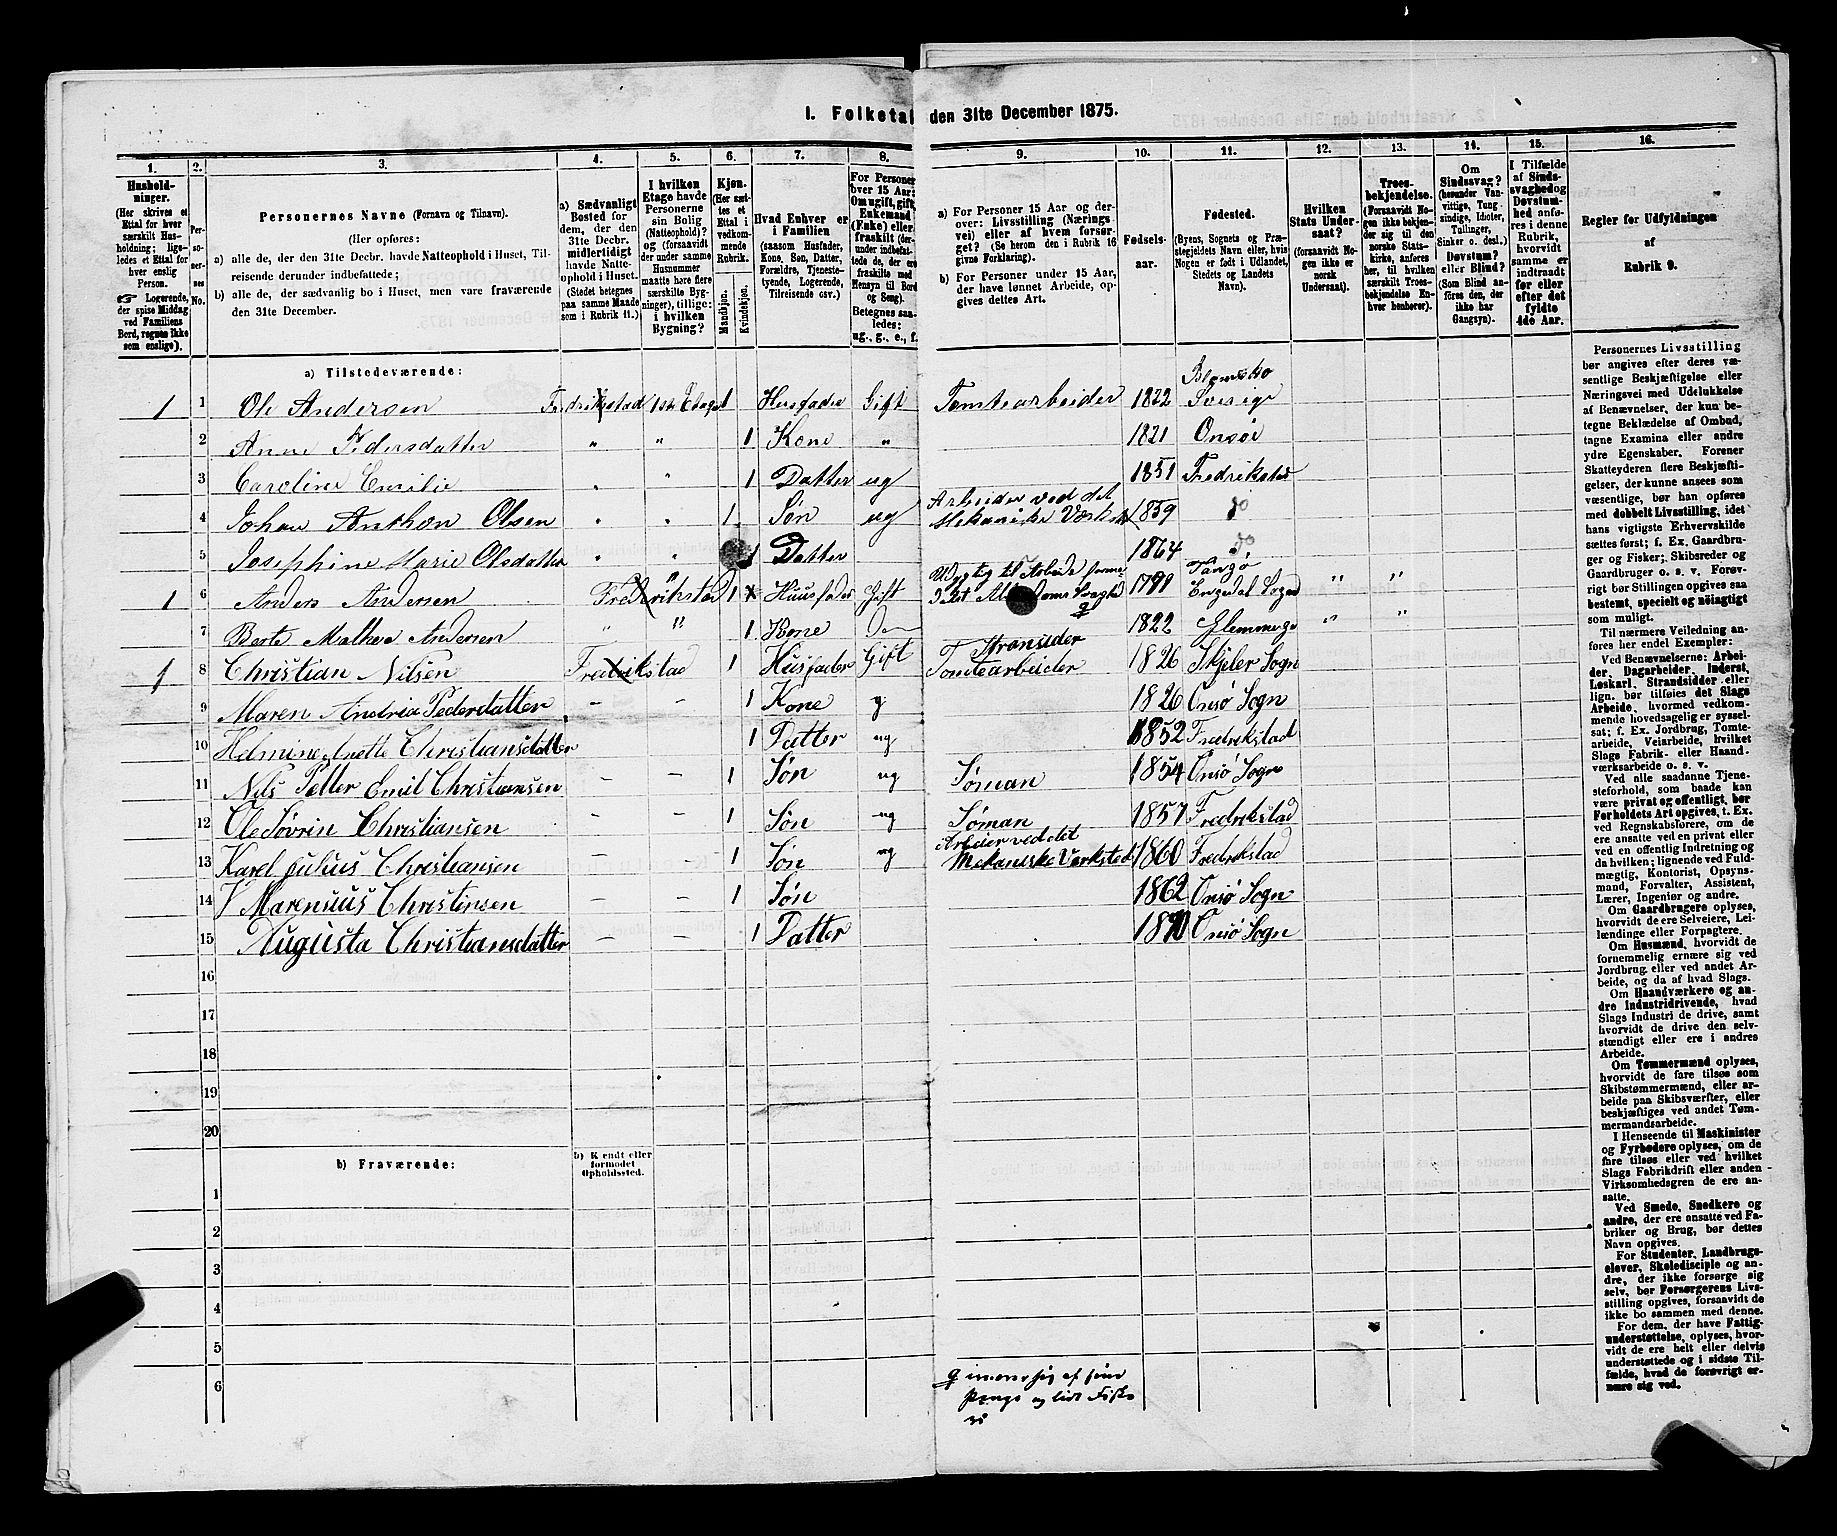 1. Folketal den 31te December 1875.
1. 2. 3. 4. 5. 6. 7. 8. 9. 10. 11. 12. 13. 14. 15. 16.
Hushold-
ninger.
(Her skrives et
Ettal for hver
særskilt Hus-
holdning; lige-
ledes et Ettal for
hver enslig
Person.
☞ Logerende,
der spise Middag
ved Familiens
Bord, regnes ikke
som enslige).
Per-
so-
ner-
nes
No.
Personernes Navne (Fornavn og Tilnavn).
(Her opføres:
a) alle de, der den 31te Decbr. havde Natteophold i Huset, Til-
reisende derunder indbefattede;
b) alle de, der sædvanlig bo i Huset, men vare fraværende
den 31te December.
a) Sædvanligt
Bosted for
dem, der den
31te Decbr.
midlertidigt
havde Natte-
ophold i Huset.
(Stedet betegnes
paa samme Maade
som i Rubrik 11.)
I hvilken
Etage havde
Personerne
sin Bolig
(Natteophold)?
og (forsaavidt
der under samme
Husnummer
maatte høre flere
særskilte Byg-
ninger), tillige:
i hvilken
Bygning?
Kjøn.
(Her sæt-
tes et
Ettal i
vedkom-
mende
Rubrik.
Mandkjøn.
Kvindekjøn.
Hvad Enhver er
i Familien
(saasom Husfader,
Kone, Søn, Datter,
Forældre, Tjeneste-
tyende, Logerende,
Tilreisende osv.)
For Personer
over 15 Aar:
Om ugift, gift,
Enkemand
(Enke) eller
fraskilt (der-
under indbefat-
tede de, der ere
fraskilte med
Hensyn til Bord
og Seng)
Betegnes saa-
ledes:
ug., g., e., f.
a) For Personer 15 Aar og der-
over: Livsstilling (Nærings-
vei) eller af hvem forsør-
get? (Se herom den i Rubrik 16
givne Forklaring).
b) For Personer under 15 Aar,
der have lønnet Arbeide, op-
gives dettes Art.
Fødsels-
aar.
Fødested.
(Byens, Sognets og Præ-
stegjeldets Navn eller, hvis
Nogen er født i Udlandet,
Stedets og Landets
Navn).
Hvilken
Stats Under-
saat?
(forsaavidt No-
gen ikke er
norsk
Undersaat).
Troes-
bekjendelse.
(Forsaavidt No-
gen ikke bekjen-
der sig til den
norske Stats-
kirke, anføres
her, til hvilken
Troesbe-
kjendelse En-
hver henhører).
Om
Sindssvag?
(herunder Van-
vittige, Tung-
sindige, Idioter,
Tullinger,
Sinker o. desl.)
Døvstum?
eller Blind?
(Som Blind an-
føres den, der
ikke har
Gangsyn).
I Tilfælde
af Sinds-
svaghed og
Døvstum-
hed anfø-
res i denne
Rubrik,
hvorvidt
samme er
indtraadt
før eller
efter det
fyldte
4de Aar.
Regler for Udfyldningen
af
Rubrik 9.
a) Tilstedeværende:
1 1 Ole Andersen Fredrikstad 1ste Etage 1 Husfader Gift Tomtearbeider 1822 Sverige
2 Anne Pedersdatter " " 1 Kone " 1821 Onsø
3 Caroline Emilie " " 1 Datter ug 1851 Fredrikstad
4 Johan Anthon Olsen " " 1 Søn ug Arbeider ved det
Mekaniske Værksted 1859 do
5 Josephine Marie Olsdatter " " 1 Datter 1864 do
1 6 Anders Andersen Fredrikstad " 1 Huusfader Gift 1799 Sogn " "
7 Berte Mathea Andersen " " 1 Kone 1822 Glemminge " "
1 8 Christian Nilsen Fredrikstad 1 Husfader Gift Stransider
Tomtearbeider 1826 Skjeler Sogn
9 Maren Andria Pedersdatter – – 1 Kone g 1826 Onsø Sogn
10 Helmine Anette Christiansdatter 1 Datter ug 1852 Fredrikstad
11 Nils Petter Emil Christiansen – – 1 Søn ug Søman 1854 Onsø Sogn
12 Ole Sövrin Christiansen – – 1 Søn ug Søman 1857 Fredrikstad
13 Karel Julius Christiansen – – 1 Søn ug Arbeider ved det
Mekaniske Værksted 1860 Fredrikstad
14 Marensius Christinsen – – 1 Søn 1862 Onsø Sogn
15 Augusta Christiansdatter – – 1 Datter 1870 Onsø Sogn
16
17
18
19
20
b) Fraværende:
b) Kjendt eller
formodet
Opholdssted.
1
2
3
4
5
6
af sine
Penge og lidt
Personernes Livsstilling
bør angives efter deres væ-
sentlige Beskjæftigelse eller
Næringsvei med Udelukkelse
af Benævnelser, der kun be-
tegne Beklædelse af Ombud,
tagne Examina eller andre
ydre Egenskaber. Forener
Skatteyderen flere Beskjæfti-
gelser, der kunne ansees som
væsentlige, bør han opføres
med dobbelt Livsstilling, idet
hans vigtigste Erhvervskilde
sættes først; f. Ex. Gaardbru-
ger og Fisker; Skibsreder og
Gaardbruger o. s. v. Forøv-
rigt bør Stillingen opgives saa
bestemt, specielt og nøiagtigt
som muligt.
Til nærmere Veiledning an-
føres her endel Exempler:
Ved Benævnelserne: Arbei-
der, Dagarbeider, Inderst,
Løskarl, Strandsidder eller
lign. bør tilføies det Slags
Arbeide, hvormed vedkom-
mende hovedsagelig er syssel-
sat; f. Ex. Jordbrug, Tomte-
arbeide, Veiarbeide, hvilket
Slags Fabrik- eller Haand-
værksarbeide o. s. v.
Ved alle saadanne Tjene-
steforhold, som baade kan
være privat og offentligt, bør
Forholdets Art opgives, t. Ex.
ved Regnskabsførere, om de
ere ansatte ved en privat eller
ved en offentlig Indretning og
da hvilken; lignende ved Fuld-
mægtig, Kontorist, Opsyns-
mand, Forvalter, Assistent,
Lærer, Ingeniør og andre.
Om Gaardbrugere oplyses,
hvorvidt de ere Selveiere, Lei-
lændinge eller Forpagtere.
Om Husmænd, hvorvidt de
fornemmelig ernære sig ved
Jordbrug eller ved andet Ar-
beide, og da af hvad Slags.
Om Haandværkere og an-
dre Industridrivende, hvad
Slags Industri de drive, samt
hvorvidt de drive den selv-
stændigt eller ere i andres
Arbeide.
Om Tømmermænd oplyses,
hvorvidt de fare tilsøs som
Skibstømmermænd, eller ar-
beide paa Skibsværfter, eller
beskjæftiges ved andet Tøm-
mermandsarbeide.
I Henseende til Maskinister
og Fyrbødere oplyses, om de
fare tilsøs eller ved hvilket
Slags Fabrikdrift eller anden
Virksomhedsgren de ere an-
satte.
Ved Smede, Snedkere og
andre, der ere ansatte ved Fa-
briker og Brug, bør dettes
Navn opgives.
For Studenter, Landbrugs-
elever, Skoledisciple og an-
dre, der ikke forsørge sig
selv, bør Forsørgerens Livs-
stilling opgives, forsaavidt de
ikke bo sammen med denne.
For dem, der have Fattig-
understøttelse, oplyses, hvor-
vidt de ere helt eller delvis
understøttede og i sidste Til-
fælde, hvad de forøvrigt er-
nære sig ved.